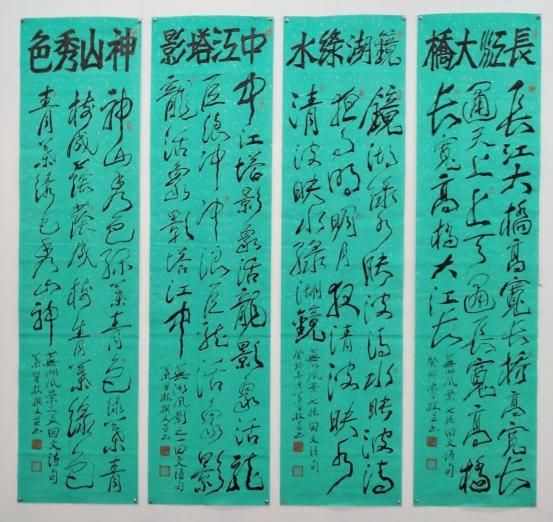 長江大橋
長江大橋高寬長橋高寬長
通天上上天通長寬高橋
長寬高橋大江長
蕪湖風景七絕回文詩句
鏡湖綠水
鏡湖綠水映波清水映波清
抱月明明月抱清波映水
清波映水綠湖鏡
蕪湖風景七絕回文詩句
中江塔影
中江塔影象活龍影象活龍
巨浪沖沖浪巨龍活象影
龍活象影塔江中
回文詩句
神山秀色
神山秀色綠葉青色綠葉青
枝盛蔭蔭盛枝青葉綠色
青葉綠色秀山神
回文詩句